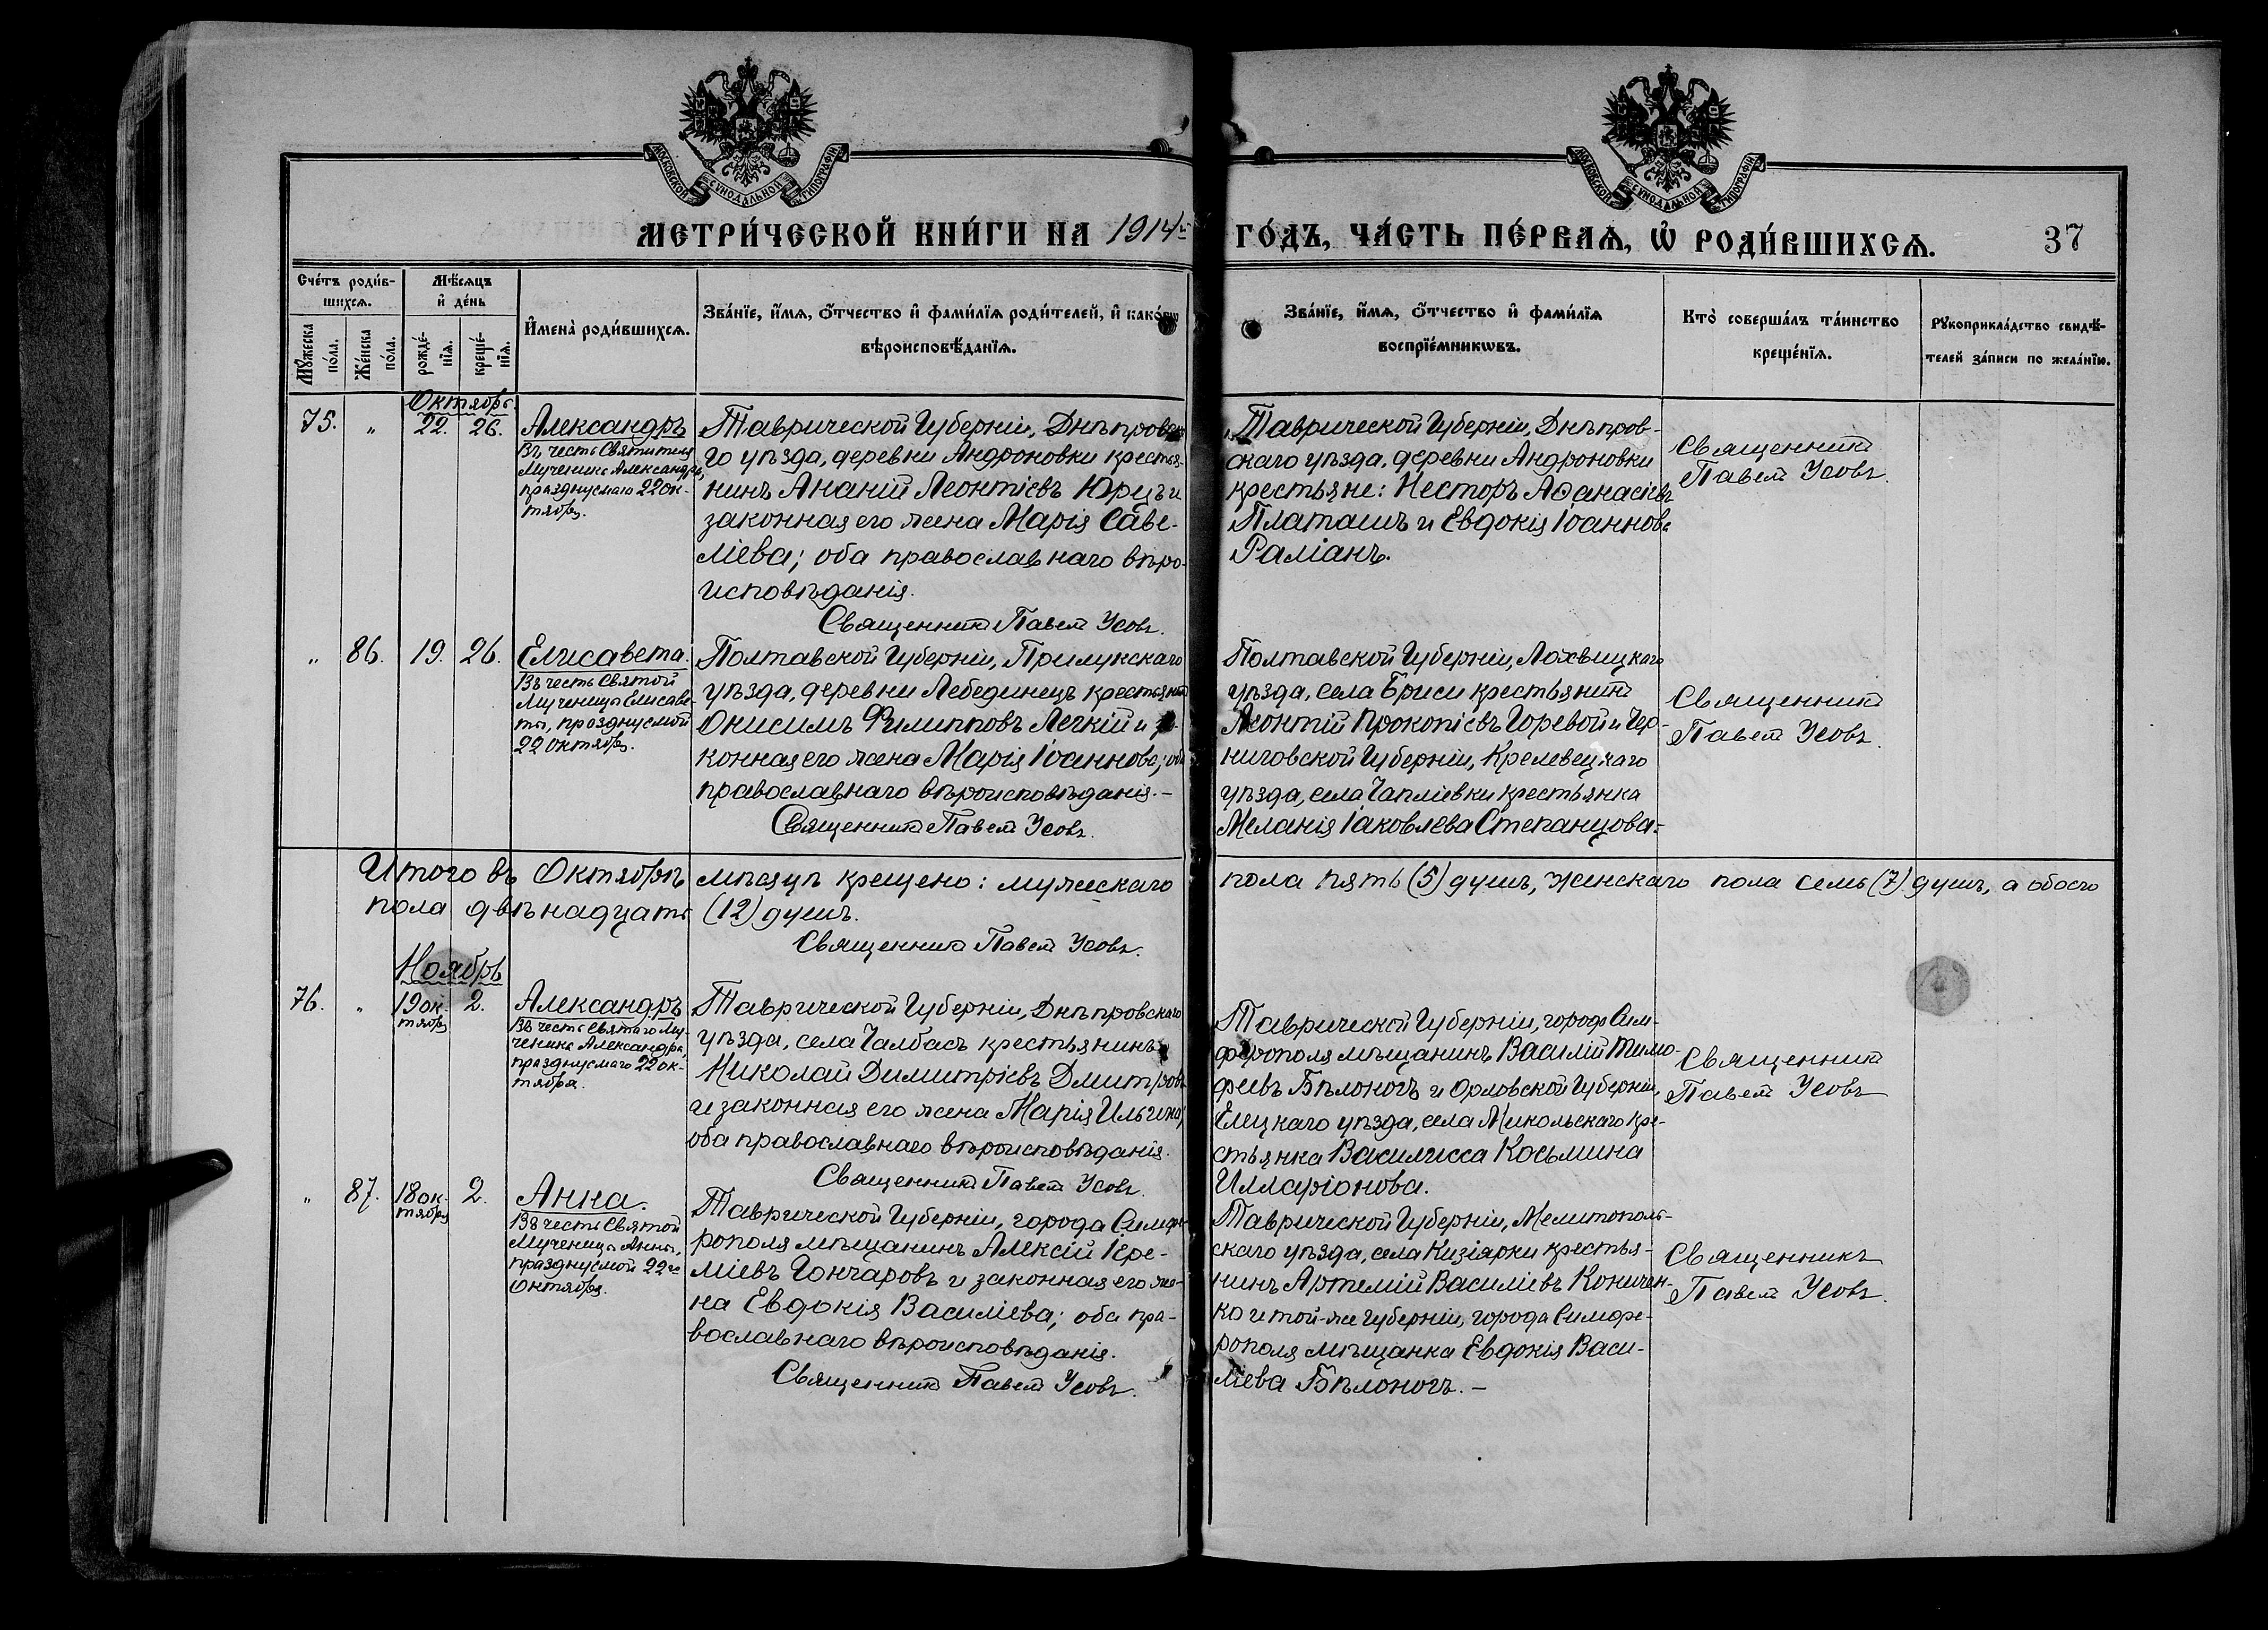 МОСКОВСКОЙ СѴНОДАЛЬНОЙ ТИПОГРАФІИ
МОСКОВСКОЙ СѴНОДАЛЬНОЙ ТИПОГРАФІИ
МЕТРИ́ЧЕСКОЙ КНИ́ГИ НА 1914й ГО́ДЪ, ЧА́СТЬ ПЕ́РВАѦ, Ѡ҆ РОДИ́ВШИХСѦ.
37
Сче́тъ роди́в-
шихсѧ.
Мꙋжеска по́ла.
Же́нска по́ла.
Мѣ́сѧцъ
и҆ де́нь
рожде́-
нїѧ.
креще́-
нїѧ.
И҆мена̀ роди́вшихсѧ.
Зва́нїе, и҆́мѧ, ѻ҆́тчество и҆ фами́лїѧ роди́телей, и҆ како́гѡ
вѣроисповѣ́данїѧ.
Зва́нїе, и҆́мѧ, ѻ҆́тчество и҆ фами́лїѧ
воспрїе́мникѡвъ.
Кто̀ соверша́лъ та́инство
креще́нїѧ.
Рꙋкоприкла́дство свидѣ́-
телей за́писи по жела́нїю.
Октябрь.
75.
"
22.
26.
Александръ
Въ честь Святителя
Мученика Александра,
празднуемаго 22 ок-
тября.
Таврической Губерніи, Днѣпровска-
го уѣзда, деревни Андроновки крестья-
нинъ Ананій Леонтіевъ Юрецъ и
законная его жена Марія Саве-
ліева; оба православнаго вѣро-
исповѣданія.
Священникъ Павелъ Усовъ.
Таврической Губерніи, Днѣпров-
скаго уѣзда, деревни Андроновки
крестьяне: Несторъ Аѳанасіевъ
Платашъ и Евдокія Іоаннова
Раліанъ.
Священникъ
Павелъ Усовъ.
"
86.
19.
26.
Елисавета.
Въ честь Святой
Мученицы Елисаве-
ты, празднуемой
22 октября.
Полтавской Губерніи, Прилукскаго
уѣзда, деревни Лебединецъ крестьянинъ
Онисимъ Филипповъ Легкій и за-
конная его жена Марія Іоаннова; оба
православнаго вѣроисповѣданія.-
Священникъ Павелъ Усовъ.
Полтавской Губерніи, Лохвицкаго
уѣзда, села Бриси крестьянинъ
Леонтій Прокопіевъ Горевой и Чер-
ниговской Губерніи, Кролевецкаго
уѣзда, села Чапліевки крестьянка
Меланія Іаковлева Степанцова.-
Священникъ
Павелъ Усовъ.
Итого въ Октябрѣ мѣсяцѣ крещено: мужескаго пола пять (5) душъ, женскаго пола семь (7) душъ, а обоего
пола двѣнадцать (12) душъ.
Священникъ Павелъ Усовъ.
Ноябрь
76.
"
19 ок-
тября
2.
Александръ
Въ честь Святаго Му-
ченика Александра,
празднуемаго 22 ок-
тября.
Таврической Губерніи, Днѣпровскаго
уѣзда, села Чалбасъ крестьянинъ
Николай Димитріевъ Дмитровъ
и законная его жена Марія Ильина;
оба православнаго вѣроисповѣданія.
Священникъ Павелъ Усовъ.
Таврической Губерніи, города Сим-
ферополя мѣщанинъ Василій Тимо-
феевъ Бѣлоногъ и Орловской Губерніи,
Елецкаго уѣзда, села Никольскаго кре-
стьянка Василисса Косьмина
Илларіонова.
Священникъ
Павелъ Усовъ
"
87.
18 ок-
тября
2.
Анна.
Въ честь Святой
Мученицы Анны,
празднуемой 22го
Октября.
Таврической Губерніи, города Симфе-
рополя мѣщанинъ Алексій Іере-
міевъ Гончаровъ и законная его же-
на Евдокія Василіева; оба пра-
вославнаго вѣроисповѣданія.
Священникъ Павелъ Усовъ.
Таврической Губерніи, Мелитополь-
скаго уѣзда, села Кизіярки крестья-
нинъ Артемій Василіевъ Коничен-
ко и той-же Губерніи, города Симфе-
рополя мѣщанка Евдокія Васи-
ліева Бѣлоногъ.-
Священникъ
Павелъ Усовъ.